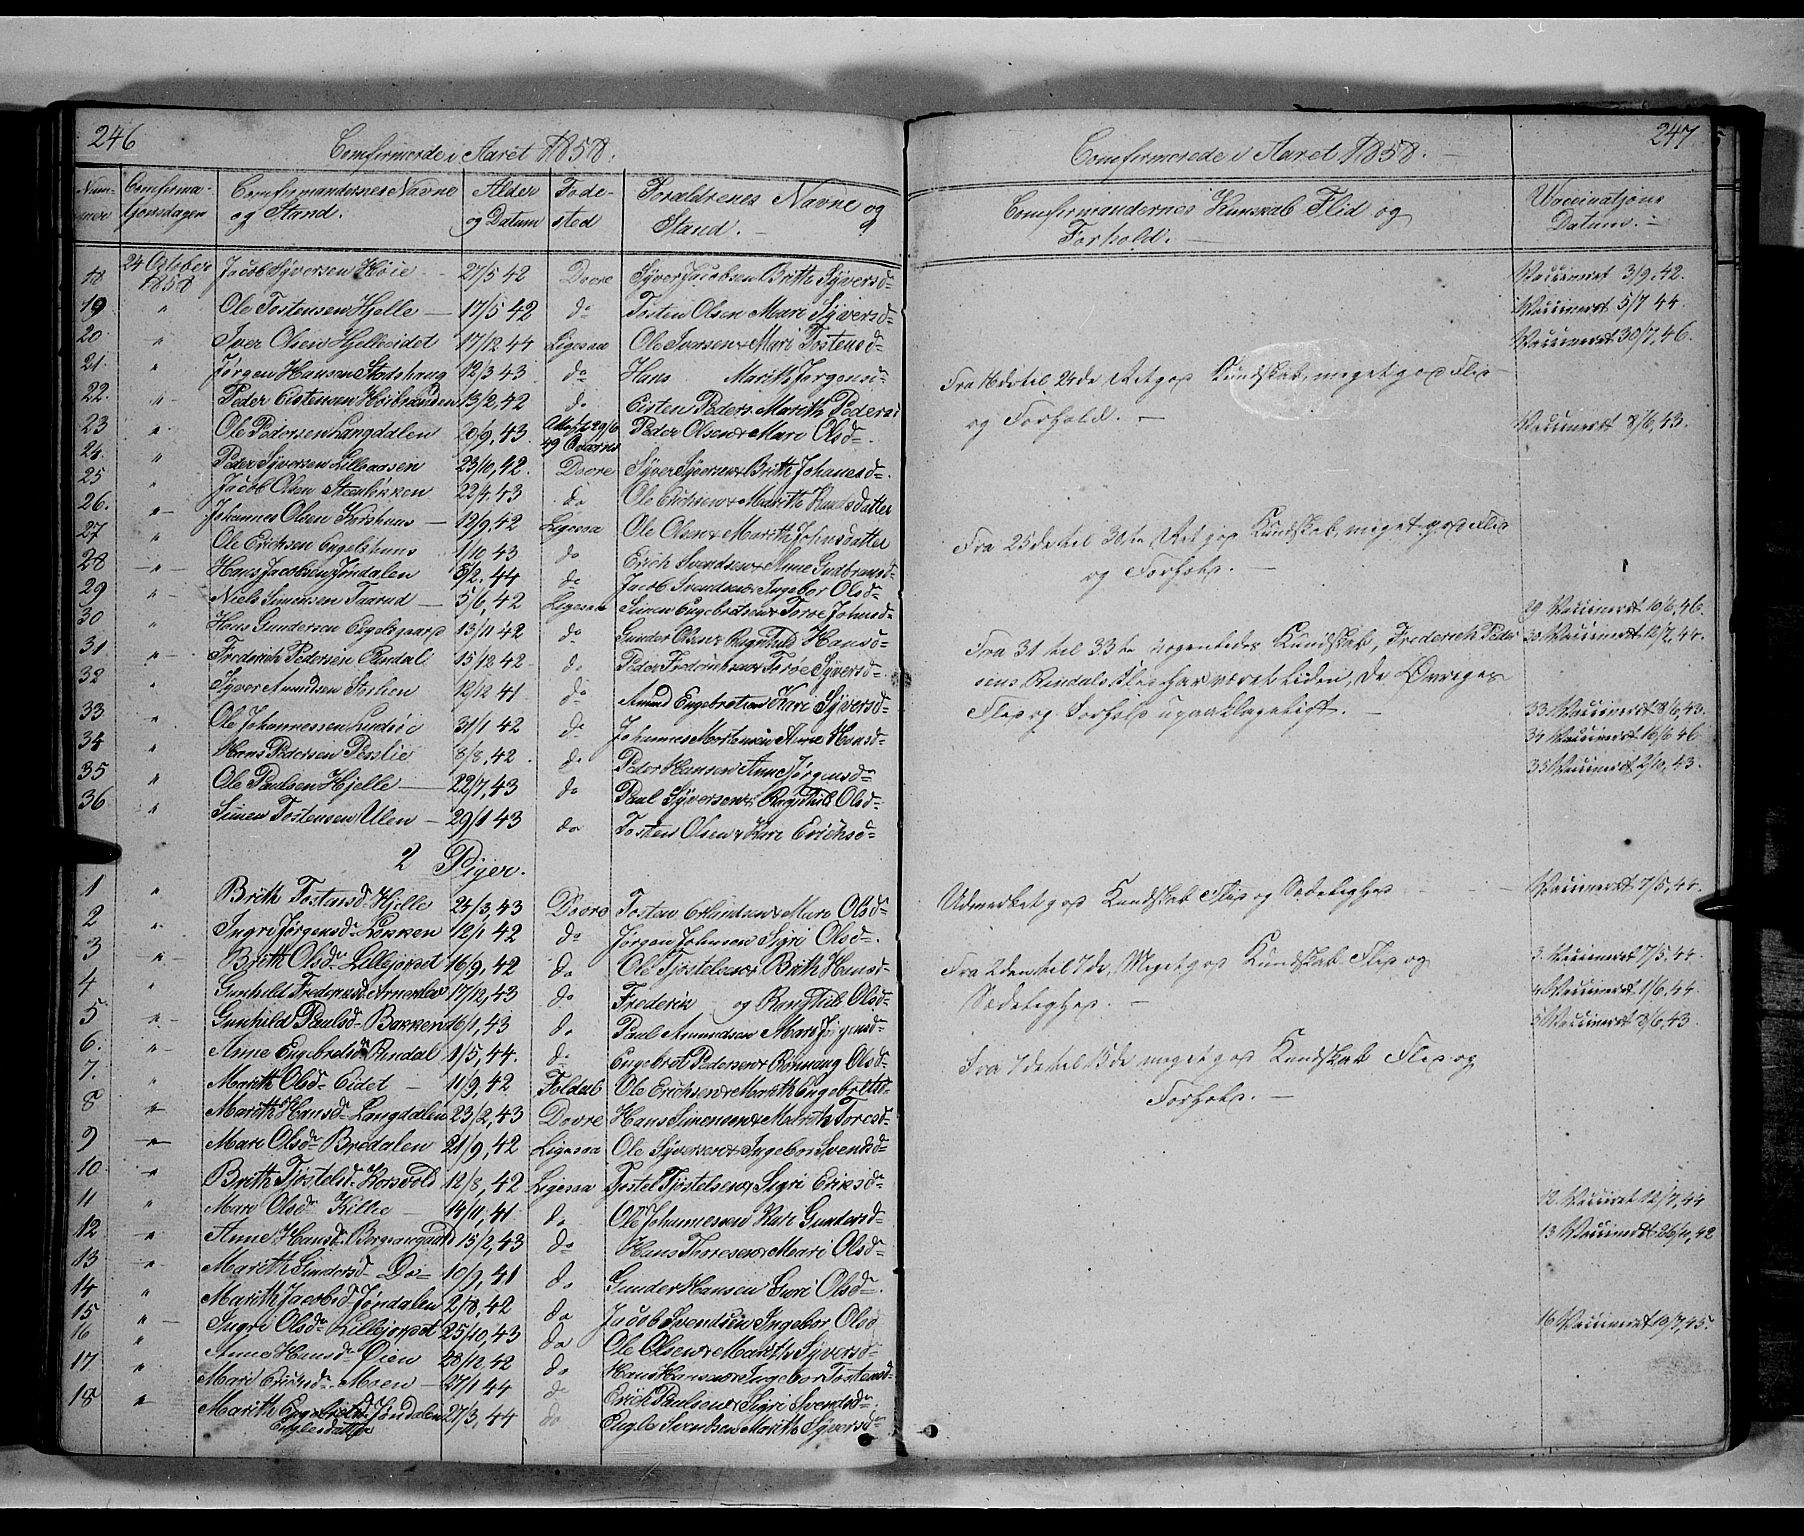 246
Comfirmerede i Aaret 1858.
Num-mer Comfirma-tjonsdagen Comfirmandernes Navne og Stand. Alder og Datum Føde-sted Forældrenes Navne og Stand.
18 24 October 1858 Jacob Syversen Høie 27/5 42 Dovre Syver Jacobsen Brith Syversd
19 " Ole Tostensen Hjelle 17/5 42 do Tosten Olsen Mari Syversd
20 " Iver Olsen Hjelleidet 17/12 44 Ligesaa Ole Iversen Mari Tostensd
21. " Jørgen Hansen Stadshaug 12/3 43 do Hans Marith Jørgensd
22. " Peder Eistensen 13/2, 42 do Eisten Peders. Marith Pedersd
23 " Ole Pedersen Langdalen 20/9, 43 Peder Olsen Mari Olsd
24 " Peder Syversen Lilleaasen 23/10, 42. Dovre Syver Syversen Brith Johannesd
25 " Jacob Olsen Steenløkken 22/4, 43 do Ole Erichsen Marith Hansdatter
26. " Johannes Olsen Korshuus 12/9, 42 Ligesaa Ole Olsen Marith Johnsdatter
27 " Ole Erichsen Engelshuus 1/10 43 do Erich Svendsen Anne Gudbransd
28 " Hans Jacobsen Jøndalen 8/2. 44 do Jacob Svendsen Ingebor Olsd
29 " Niels Simensen Taarud 5/6, 42 Ligesaa Simen Engebretsen Torøe Johnsd
30 " Hans Gundersen Engelsgaard 13/11 42 do Gunder Olsen Ragnhild Hansd
31 " Frederich Pedersen Rindal 15/12 42 do Peder Frederichsen Torøe Syversd
32 " Syver Amundsen 12/12 41 do Amund Engebretsen Kari Syversd
33 " Ole Johannessen Lindsøe 31/1 42 do Johannes Mortensen Anne Hansd
34 " Hans Pedersen 8/8, 42. do Peder Hansen Anne Jørgensd
35 " Ole Paulsen Hjelle 22/7, 43 do Paul Syversen Ragnhild Olsd
36 " Simen Tostensen Ulen 29/1 43 do Tosten Olsen Kari Erichsd
2 Piger.
1 " Brith Tostensd Hjelle 24/3, 43 Dovre Tosten Erlandsen Mari Olsd
2 " Ingri Jørgensd Løkken 12/1 42 do Jørgen Johnsen Sigri Olsd
3 " Brith Olsd Lillejordet 16/9, 42 do Ole Tjøstelsen Brith Hansd
4 " Gunhild Frederiksd 17/12, 43 do Frederik og Ragnhild Olsd
5 " Gunhild Paulsd Bakken 16/1, 43 do Paul Amundsen Mari Jørgensd
6. " Anne Engebretsd Rindal 1/5, 44. do Engebret Pedersen Rønnaug Olsd
7. " Marith Olsd Eidet 11/9, 42 Foldal Ole Erichsen Marith Engebretsd
8 " Marith Hansd Langdalen 23/2, 43 Dovre Hans Simensen Marith Toresd
9 " Mari Olsd Bredalen 21/9, 42 Ligesaa Ole Syversen Ingebor Svendsd
10 " Brith Tjøstelsd Korsvold 12/8, 42 Ligesaa Tjøstel Tjøstelsen Sigri Eriksd
11 " Mari Olsd Killie 14/11, 41 do Ole Johannessen Kari Gundersd
12 " Anne Hansd 15/2, 43 do Hans Thoresen Mari Olsd
13 " Marith Gundersd Do 10/9, 41 do Gunder Hansen Guri Olsd
14 " Marith Jacobsd Jøndalen 2/8, 42 do Jacob Svendsen Ingebor Olsd
15 " Ingri Olsd Lillejordet 25/10, 43 do Ole Olsen Marith Syversd
16 " Anne Hansd Øien 28/12, 42 do Hans Hansen Ingebor Tostensd
17 " Mari Erichsd Moen 27/1 44 do Erich Paulsen Sigri Svendsd
18 " Marith Englesdatter Jøndalen 27/3, 44 do Engle Svendsen Marith Syversd
247
Comfirmerede i Aaret 1858.
Comfirmandernes Kunskab Flid og Forhold. Vaccinatjons Datum.
Vaccineret 3/9. 42.
Vaccineret 5/7 44.
Vaccineret 30/7, 46.
Fra 16de til 24de Ret god Kundskab, meget god Flid
og Forhold.
Vaccineret 8/6, 43.
Fra 25de til 30te Ret god Kundskab, meget god Flid
og Forhold.
29 Vaccineret 10/6, 46.
30 Vaccineret 12/7, 44.
Fra 31 til 33te nogenledes Kundskab, Frederich Peder
sens Rindals Flid har været liden, de Øvriges
Flid og Forhold upaaklageligt.
33 Vaccineret 8/6, 43.
34 Vaccineret 16/6 46.
35 Vaccineret 2/10, 43.
Udmerket god Kundskab Flid og Sædelighed
Vaccineret 7/5, 44.
Fra 2den til 7de, Meget god Kundskab Flid og
Sædelighed.
3. Vaccineret 7/5, 44.
4 Vaccineret 1/6, 44.
5 Vaccineret 8/6, 43.
Fra 7de til 15de meget god Kundskab Flid og
Forhold.
12. Vaccineret 12/7, 44
13 Vaccineret 26/11, 42
16 Vaccineret 19/7, 45.